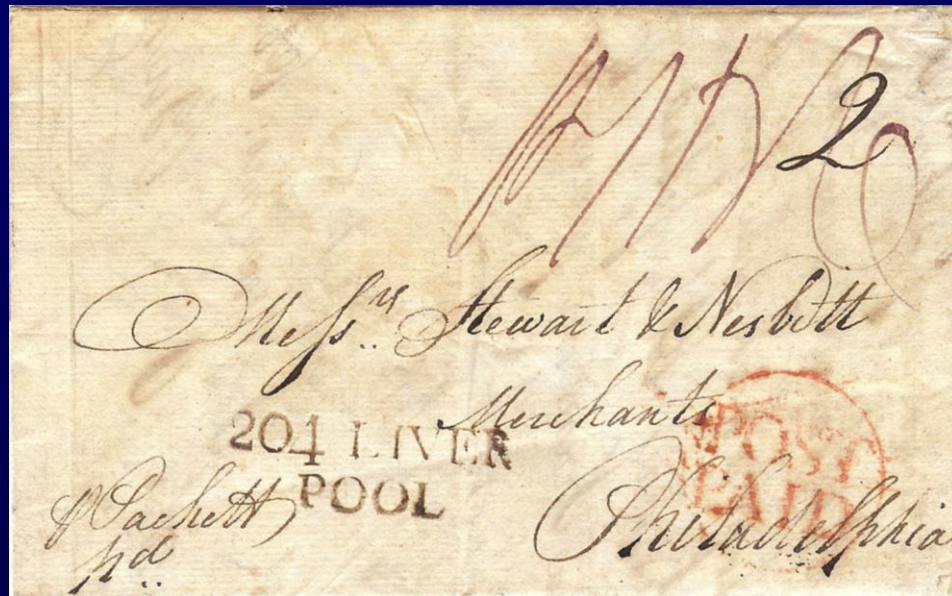 2
Messrs. Stewart & Nesbitt
Merchants
204 LIVER
POOL
POST
PAID
Philadelphia
p Packett
pd